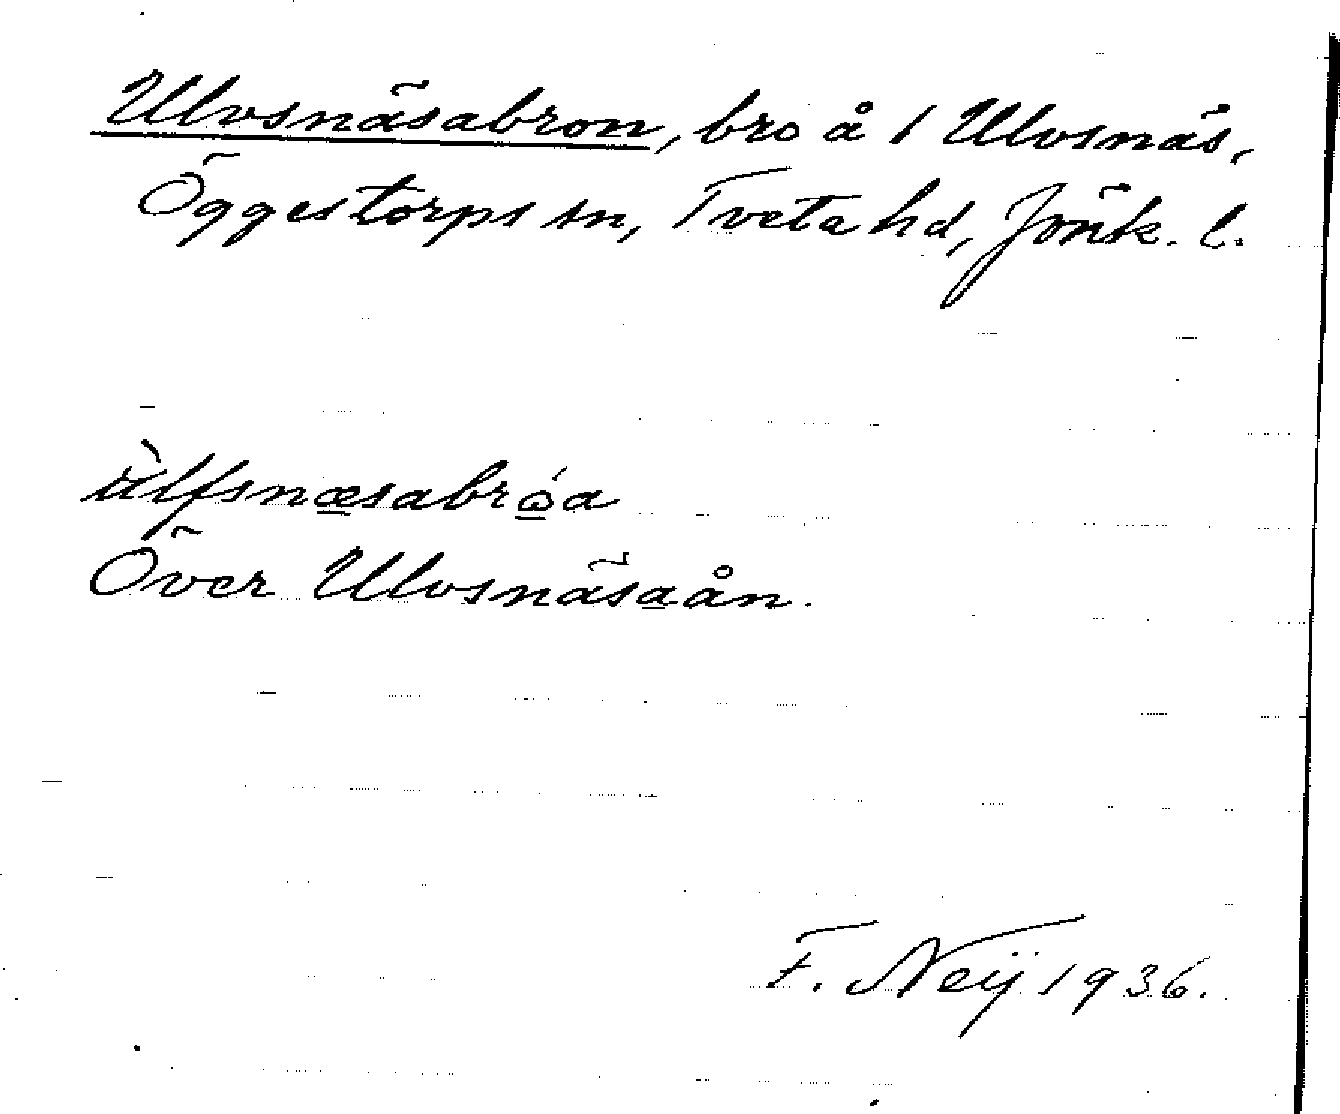 Ulvsnäsabron, bro å 1 Ulvsnäs,
Öggestorps sn, Tveta hd, Jönk. l.
ùlfsnæsabrǿa
Över Ulvsnäsaån.
F. Neij 1936.